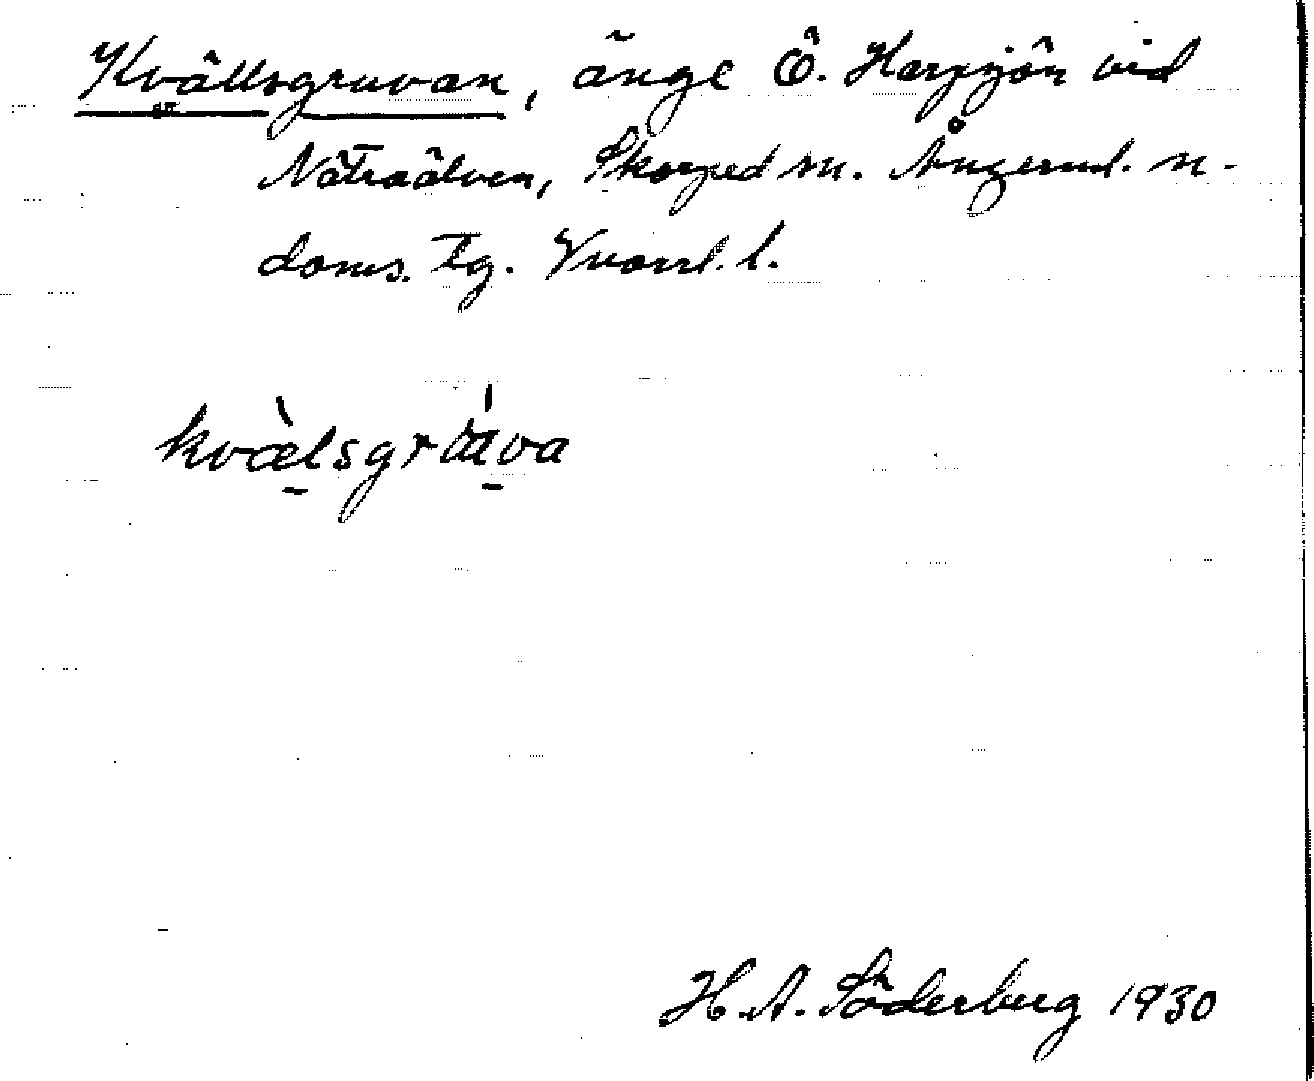 Kvällsgruvan, änge Ö. Harpsjön vid
Nätraälven, Skorped sn. Ångerml. n.
doms. tg. Vnorrl. l.
kvæ̀lsgrʉ́va
H. A. Söderberg 1930